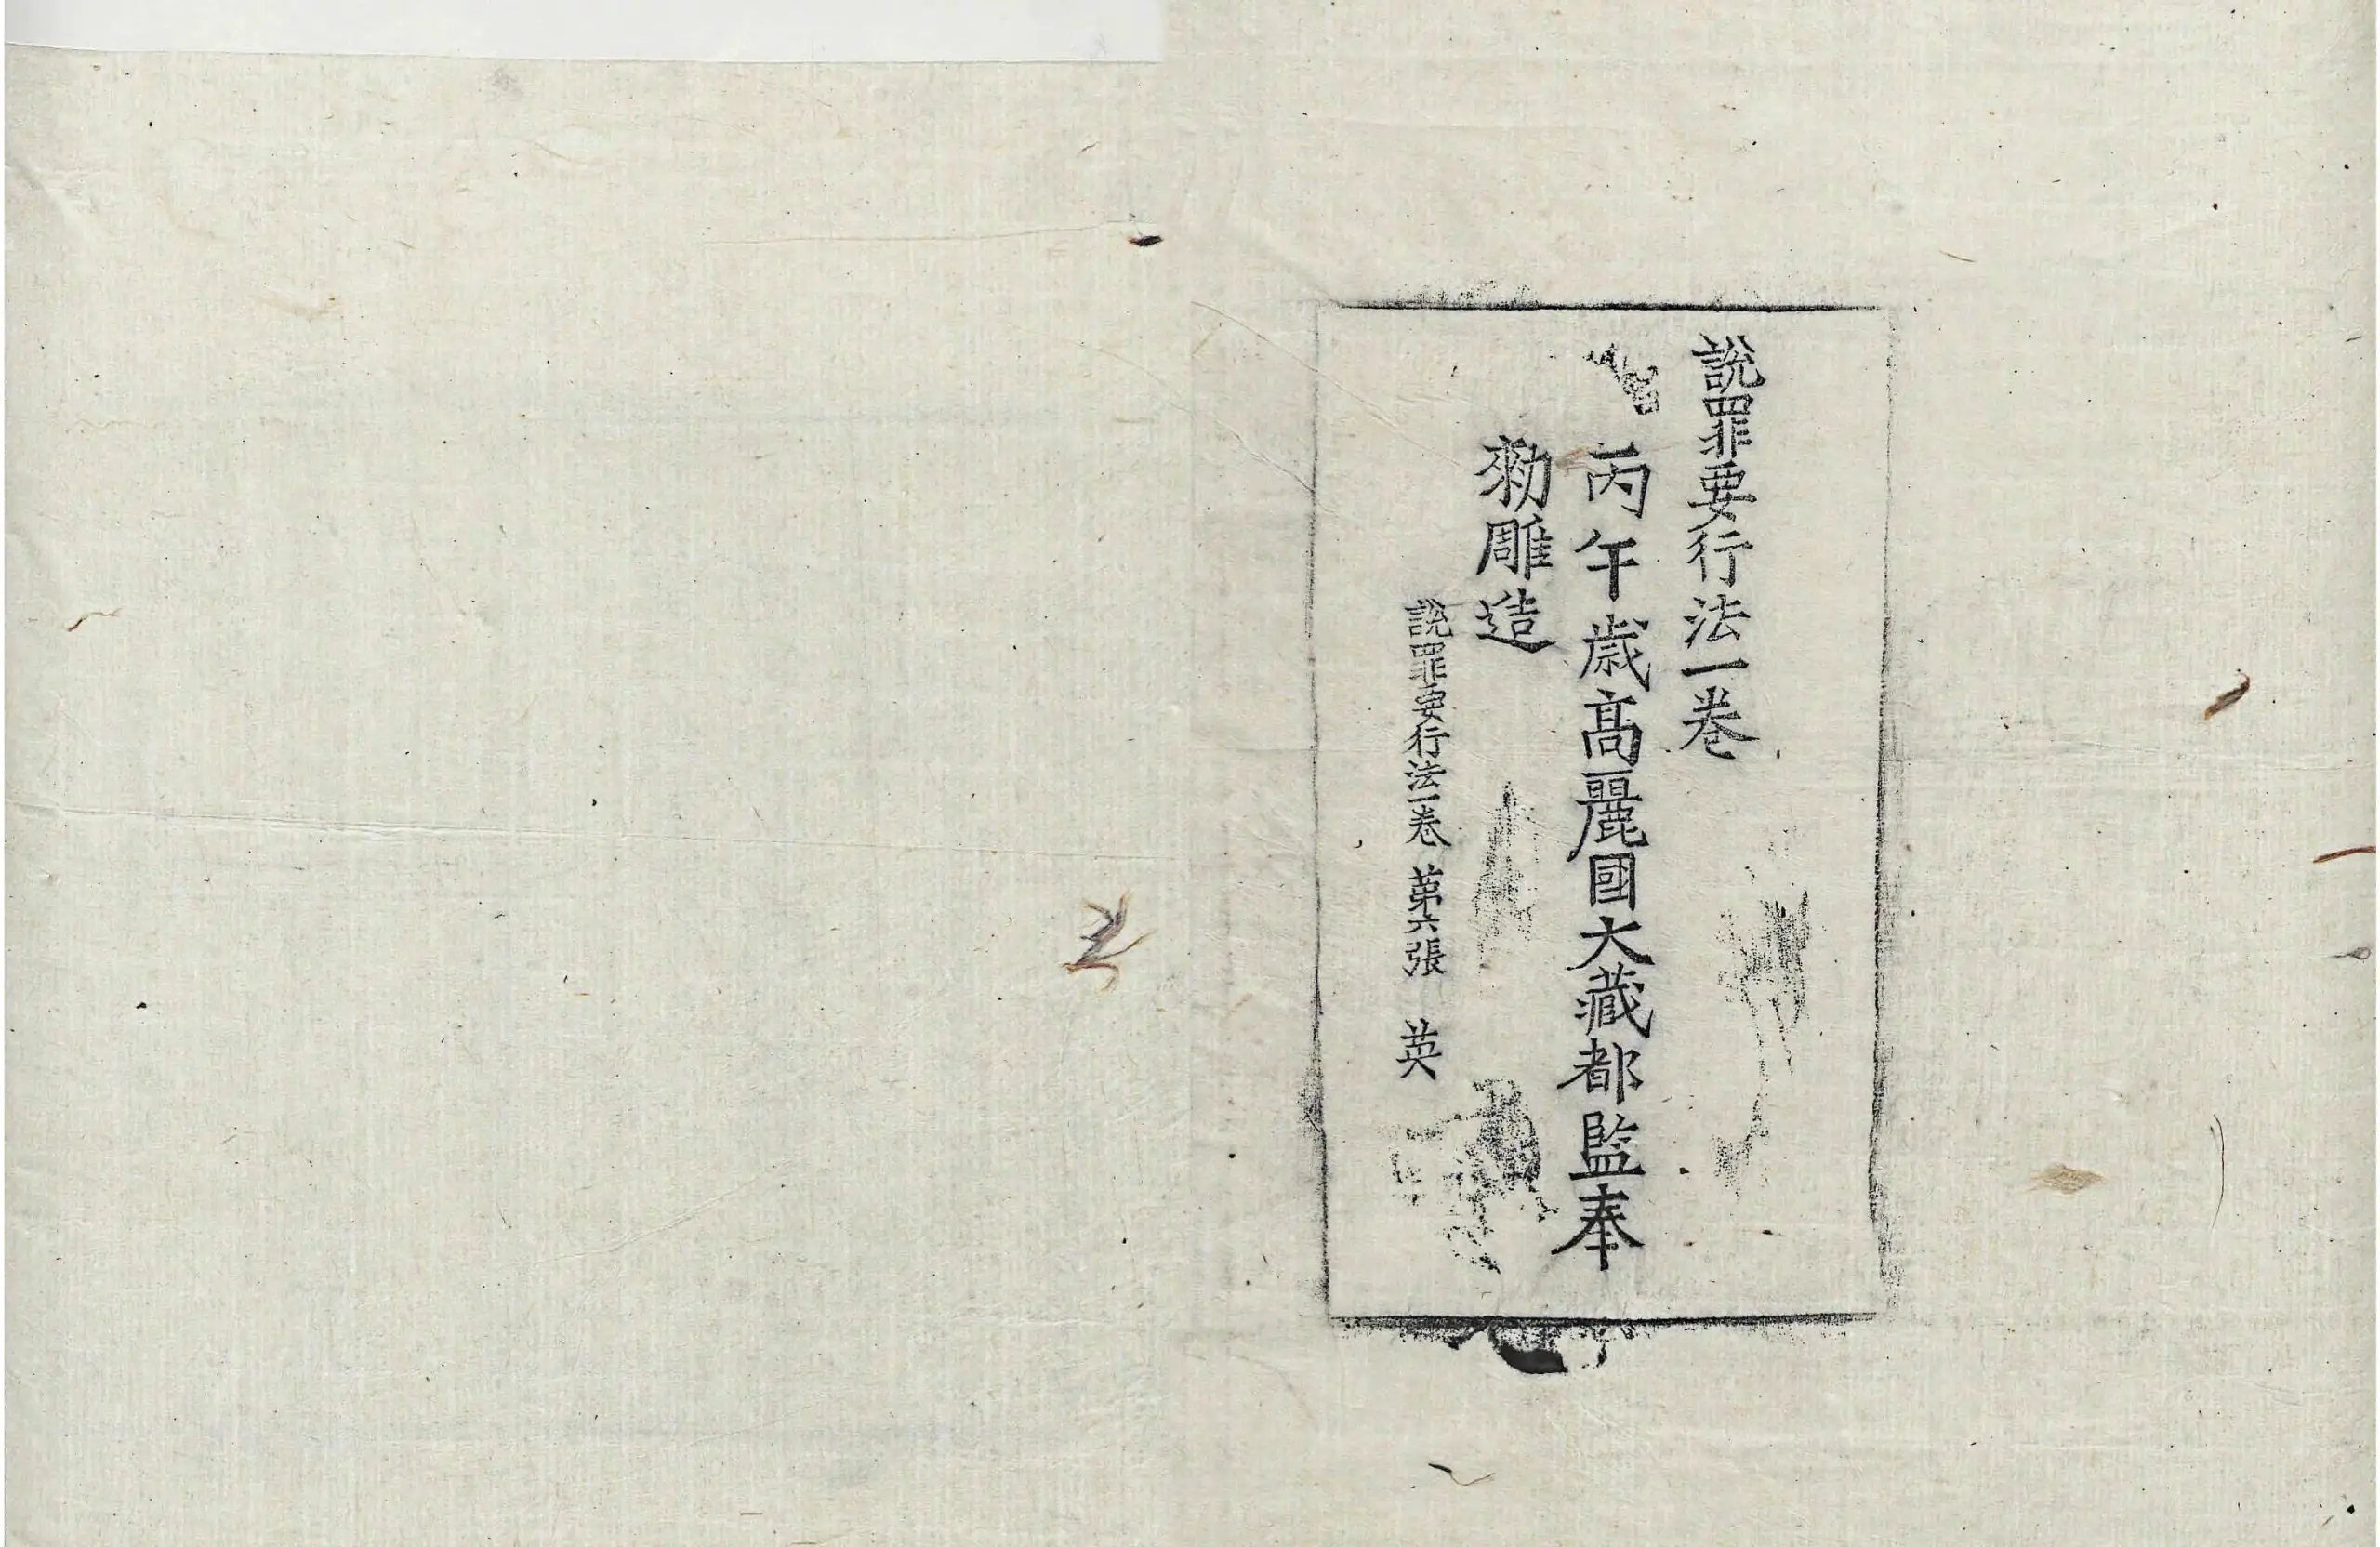 說罪要行法一卷
丙午歲高麗國大藏都監奉
勑雕造
說罪要行法一卷 第六張 英